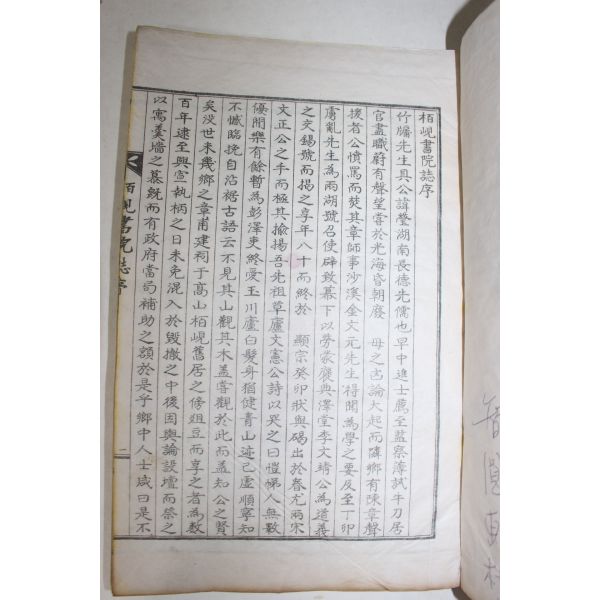 栢峴書院誌序
竹牖先生具公諱瑩湖南長德先儒也早中進士薦至監察薄試牛刀居
官盡職蔚有聲望當於光海昏朝廢 母之凶論大起而隣鄉有陳章聲
援者公憤罵而焚其章師事沙溪金文元先生得聞為學之要及至丁卯
虜亂先生為兩湖號召使辟致幕下以勞蒙褒典澤堂李文靖公為道義
之交錫號而揭之享年八十而終於 顯宗癸卯狀與碣出於春尤兩宋
文正公之手而極其揄揚吾先祖草廬文憲公詩以哭之曰愷悌人無數
優閒樂有餘暫為彭澤吏終愛玉川廬白髮身猶健青山迹已虛順寧知
不憾臨挽自沾裾古語云不見其山觀其木盖嘗觀於此而盖知公之賢
矣沒世未幾鄉之章甫建祠于高山栢峴舊居之傍俎豆而享之者為數
百年逮至興宣執柄之日未免混入於毀撤之中後因輿論設壇而祭之
以寓羹墻之慕旣而有政府當局補助之額於是乎鄉中人士咸曰是不
栢峴書院誌序
一